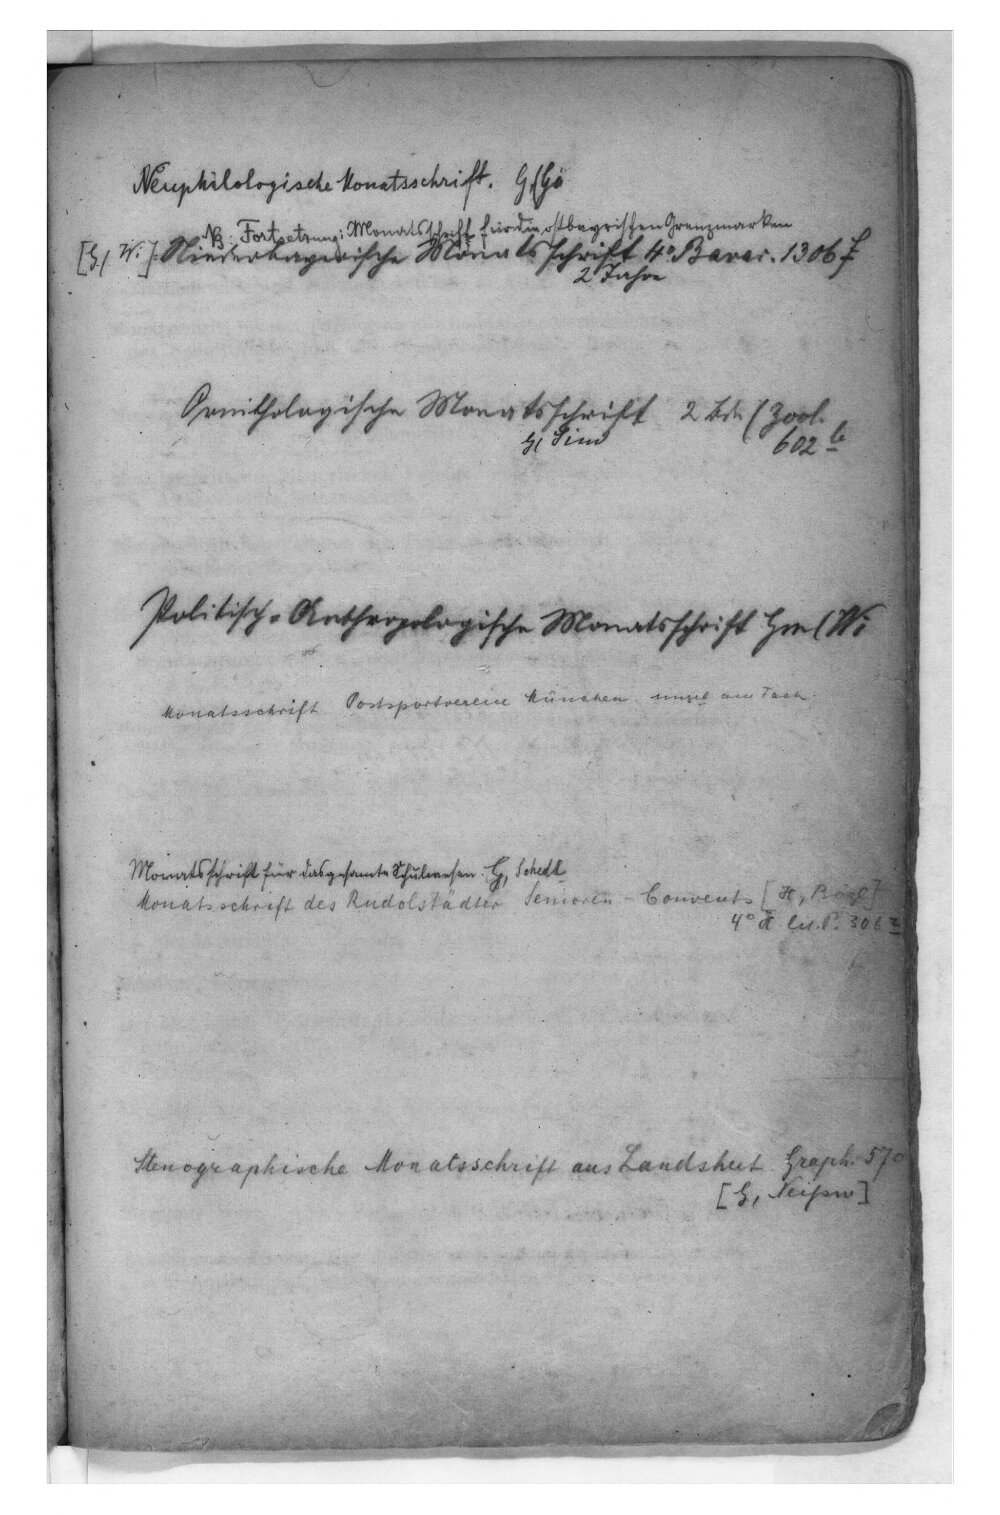 Neuphilologische Monatsschrift. G, Gö
NB. Fortsetzung: Monatsschrift für die ostbayrischen Grenzmarken
[G, Wi.] Niederbayerische Monatsschrift 4° Bavar. 1306 f
2 Jahre
Ornithologische Monatsschrift 2 Bde (Zool.
G, Simo 602 b
Politisch-Anthropologische Monatsschrift Hm (Wi
Monatsschrift Postsportverein München ungeb am Fach.
Monatsschrift für das gesamte Schulwesen. G, Schedl
Monatsschrift des Rudolstädter Senioren-Convents [H,
4° H. lit. P. 306 z
Stenographische Monatsschrift aus Landshut Graph. 570
[G, ]